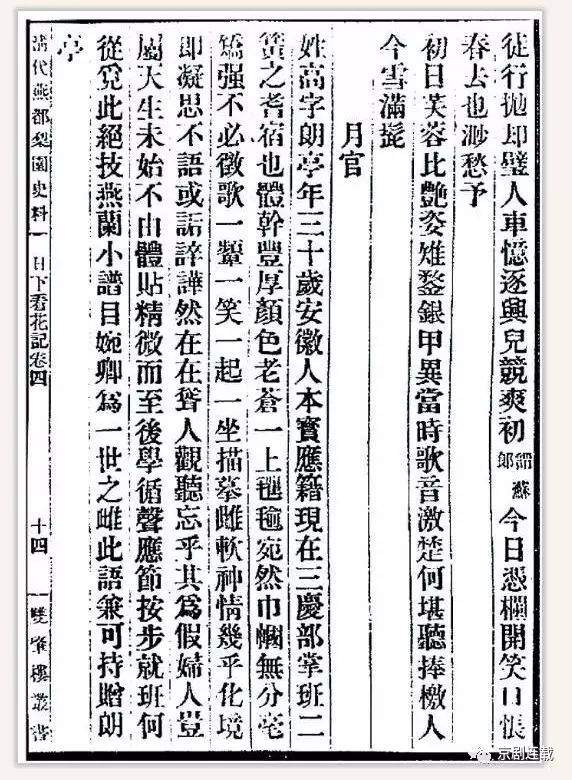 從行拋卽璧人車憶逐興兒競爽初謂蘇郎今日憑欄開笑口悵
春去也渺愁予
初日芙蓉比艷姿雉鍪銀甲異當時歌音激楚何堪聽捧檄人
今雪滿髭
月官
姓高字朗亭年三十歲安徽人本寶應籍現在三慶部掌班二
簧之耆宿也體幹豐厚顏色老蒼一上氍毹宛然巾幗無分毫
矯强不必徵歌一顰一笑一起一坐描摹雌軟神情幾乎化境
卽凝思不語或詬誶譁然在在聳人觀聽忘乎其爲假婦人豈
屬天生未始不由體貼精微而至後學循聲應節按步就班何
從覓此絕技燕蘭小譜目婉卿爲一世之雌此語兼可持贈朗
亭
清代燕都梨園史料 日下看花記卷四 十四 雙肇樓叢書
京剧连载